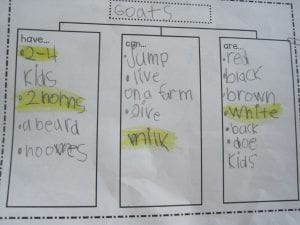 Goats
have...
• 2-4
Kids
• 2 horns
• a beard
• hooves
can...
• Jump
• live
on a farm
• give
milk
are...
• red
• black
• brown
• White
• buck
• doe
Kids